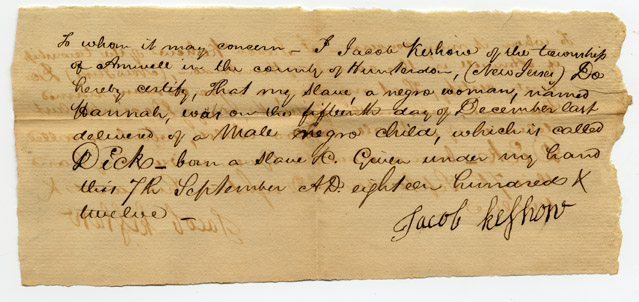 To whom it may concern – I Jacob Keshow of the township
of Amwell in the county of Hunterdon, (New Jersey) Do
hereby certify, that my slave, a negro woman, named
Hannah, was on the fifteenth day of December last
delivered of a Male negro child, which is called
Dick – born a slave &c. Given under my hand
this 7th September A.D. eighteen hundred &
twelve –
Jacob Keshow